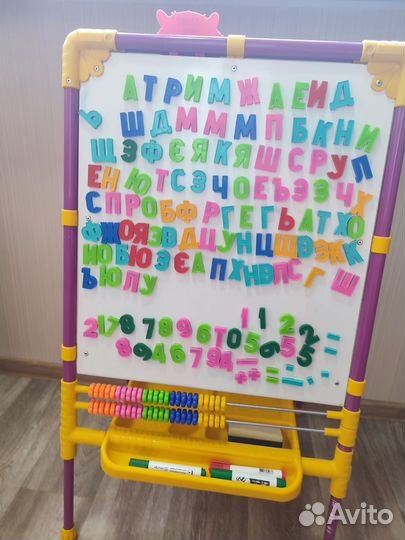 АТРИМЖАЕИД
ШДМММПБКНИ
ЬЩЭФЄЯКЯШСРУЛ
ЕНЮТСЭЧОЕЪЭЗЧХ
СПРОБФРГЕГЬАТХО
ФЖОЯЗВДЦУНЦШВЭЖК
ИОБЮЗЄАПХНВПСГШ
ЪЮЛУ
21787896Т0511225
8946794 695
Avito